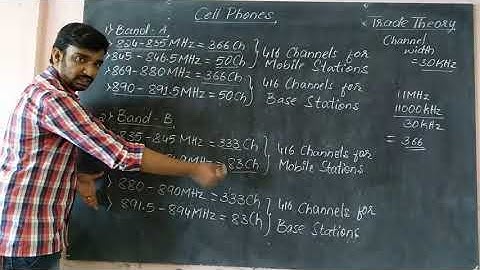 Cell Phones
Trade Theory
1) Band-A
> 824-835 MHz = 366 Ch
> 845 - 846.5 MHz = 50 Ch
416 Channels for
Mobile Stations
> 869-880 MHz = 366 Ch
> 890 - 891.5 MHz = 50 Ch
416 Channels for
Base Stations
2) Band-B
835 - 845 MHz = 333 Ch
MHz = 83 Ch
416 Channels for
Mobile Stations
> 880 - 890 MHz = 333 Ch
> 891.5 - 894 MHz = 83 Ch
416 Channels for
Base Stations
Channel
width
= 30 KHz
11 MHz
11000 kHz
30 KHz
= 366